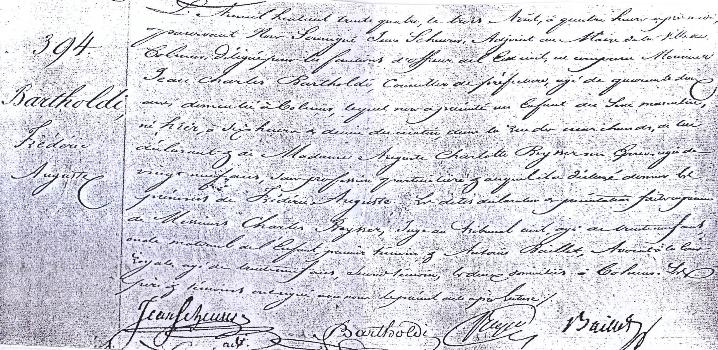 394.
Bartholdi,
Frédéric
Auguste
L'an mil huit cent trente quatre, le trois Août, à quatre heures après midi,
pardevant Nous Jean Scheurer, Adjoint au Maire de la Ville de
Colmar, délégué pour les fonctions d'officier de l'État civil, est comparu Monsieur
Jean Charles Bartholdi, Conseiller de préfecture, âgé de quarante deux
ans, domicilié à Colmar, lequel nous a présenté un Enfant du Sexe masculin,
né hier, à sept heures & demie du matin dans la rue des marchands, de lui
déclarant & de Madame Auguste Charlotte Beysser son Epouse, âgée de
vingt neuf ans, sans profession particulière & auquel il a déclaré donner les
prénoms de Frédéric Auguste. Les dites déclaration & présentation faites en présence
de Messieurs Charles Beysser, Juge au Tribunal civil, âgé de trente neuf ans
oncle maternel de l'Enfant premier témoin & Antoine Baillet, Avocat à la Cour
Royale, âgé de trente neuf ans, second témoin, les deux domiciliés à Colmar. Les
père & témoins ont signé avec nous le présent acte après lecture.
Jean Scheurer
adj.
Bartholdi
Beysser
Baillet